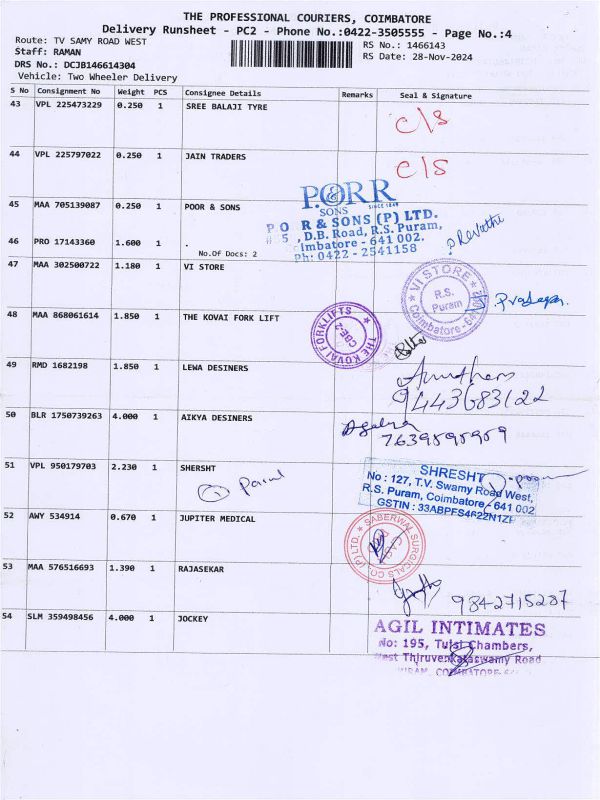 THE PROFESSIONAL COURIERS, COIMBATORE
Delivery Runsheet - PC2 - Phone No.:0422-3505555 - Page No.:4
Route: TV SAMY ROAD WEST
RS No.: 1466143
Staff: RAMAN
RS Date: 28-Nov-2024
DRS No.: DCJB146614304
Vehicle: Two Wheeler Delivery
S No Consignment No Weight PCS Consignee Details Remarks Seal & Signature
43 VPL 225473229 0.250 1 SREE BALAJI TYRE
C/S
44 VPL 225797022 0.250 1 JAIN TRADERS
C/S
45 MAA 705139087 0.250 1 POOR & SONS
PORR
SONS SINCE
P O R & SONS (P) LTD.
5, D.B. Road, R.S. Puram,
imbatore - 641 002.
Ph: 0422 - 2541158
P Revathi
46 PRO 17143360 1.600 1 .
No.Of Docs: 2
47 MAA 302500722 1.180 1 VI STORE
VI STORE
R.S.
Puram
Coimbatore-64
48 MAA 868061614 1.850 1 THE KOVAI FORK LIFT
THE KOVAI FORKLIFTS
CBE-2
49 RMD 1682198 1.850 1 LEWA DESINERS
9443683122
50 BLR 1750739263 4.000 1 AIKYA DESINERS
7639595959
51 VPL 950179703 2.230 1 SHERSHT
SHRESHT
No : 127, T.V. Swamy Road West,
R.S. Puram, Coimbatore - 641 002
GSTIN : 33ABPFS4622N1ZF
52 AWY 534914 0.670 1 JUPITER MEDICAL
SABERWAL SURGICALS CO. (P) LTD.
53 MAA 576516693 1.390 1 RAJASEKAR
9842715287
54 SLM 359498456 4.000 1 JOCKEY
AGIL INTIMATES
No: 195, Tulsi Chambers,
West Thiruvenkataswamy Road